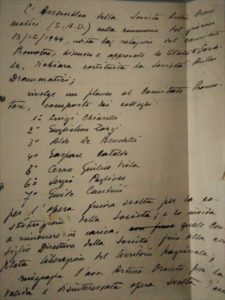 L'Assemblea della Società Autori Dram
matici (S.A.D.) nella riunione del giorno
13/12/1944, udita la relazione del Comitato
Promotore, discusso e approvato lo Statuto Socia-
le, dichiara costituita la Società Autori
Drammatici;
rivolge un plauso al Comitato Promo-
tore, composto dai colleghi:
1º Luigi Chiarelli
2º Guglielmo Zorzi
3º Aldo De Benedetti
4º Gaspare Cataldo
5º Cesare Giulio Viola
6º Sergio Pugliese
7º Guido Cantini
per l'opera finora svolta per la co-
stituzione della Società, e lo invita
a rimanere in carica, quale Con-
siglio Direttivo della Società, fino alla com
pleta liberazione del territorio nazionale;
ringrazia l'avv. per la
valida e disinteressata opera svolta